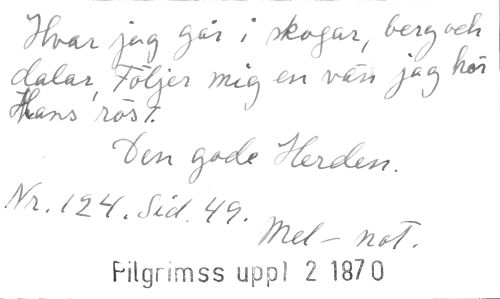 Hvar jag går i skogar, berg och
dalar, Följer mig en vän jag hör
Hans röst.
Den gode Herden.
Nr. 124. Sid. 49.
Mel - not.
Pilgrimss uppl 2 1870